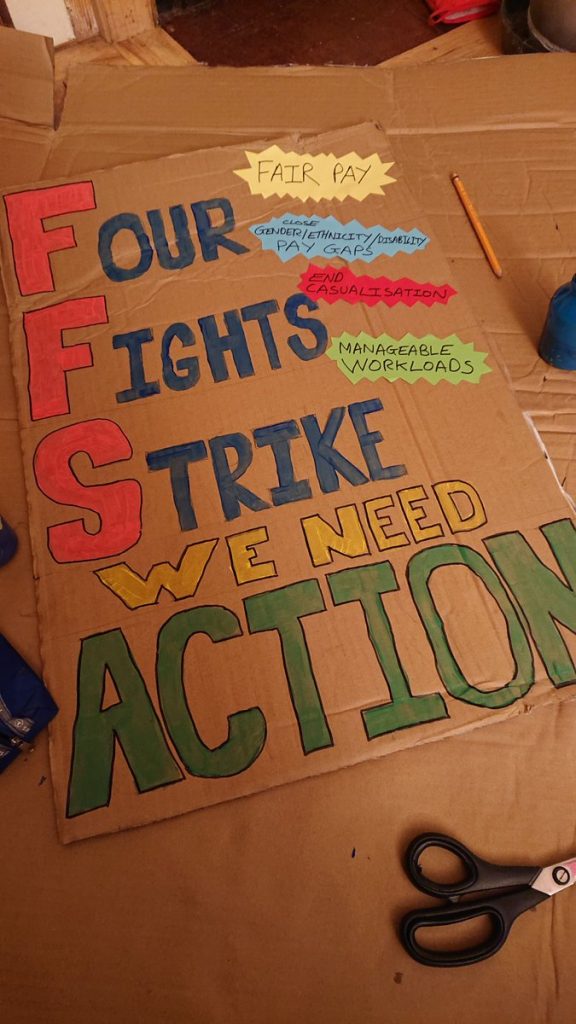 FAIR PAY
FOUR
CLOSE
GENDER/ETHNICITY/DISABILITY
PAY GAPS
END
CASUALISATION
FIGHTS
MANAGEABLE
WORKLOADS
STRIKE
WE NEED
ACTION